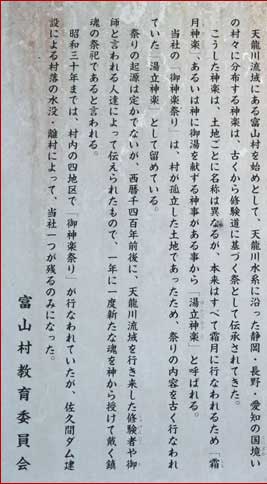 天龍川流域にある富山村を始めとして、天龍川水系に沿った静岡・長野・愛知の国境い
の村々に分布する神楽は、古くから修験道に基づく祭として伝承されてきた。
こうした神楽は、土地ごとに名称は異なるが、本来はすべて霜月に行なわれるため「霜
月神楽、あるいは神に御湯を献ずる神事がある事から「湯立神楽」と呼ばれる。
当社の「御神楽祭り」は、村が孤立した土地であったため、祭りの内容を古く行なわれ
ていた「湯立神楽」として留めている。
祭りの起源は定かでないが、西暦千四百年前後に、天龍川流域を行き来した修験者や御
師と言われる人達によって伝えられたもので、一年に一度新たな魂を神から授けて戴く鎮
魂の祭祀であると言われる。
昭和三十年までは、村内の四地区で「御神楽祭り」が行なわれていたが、佐久間ダム建
設による村落の水没・離村によって、当社一つが残るのみになった。
富山村教育委員会